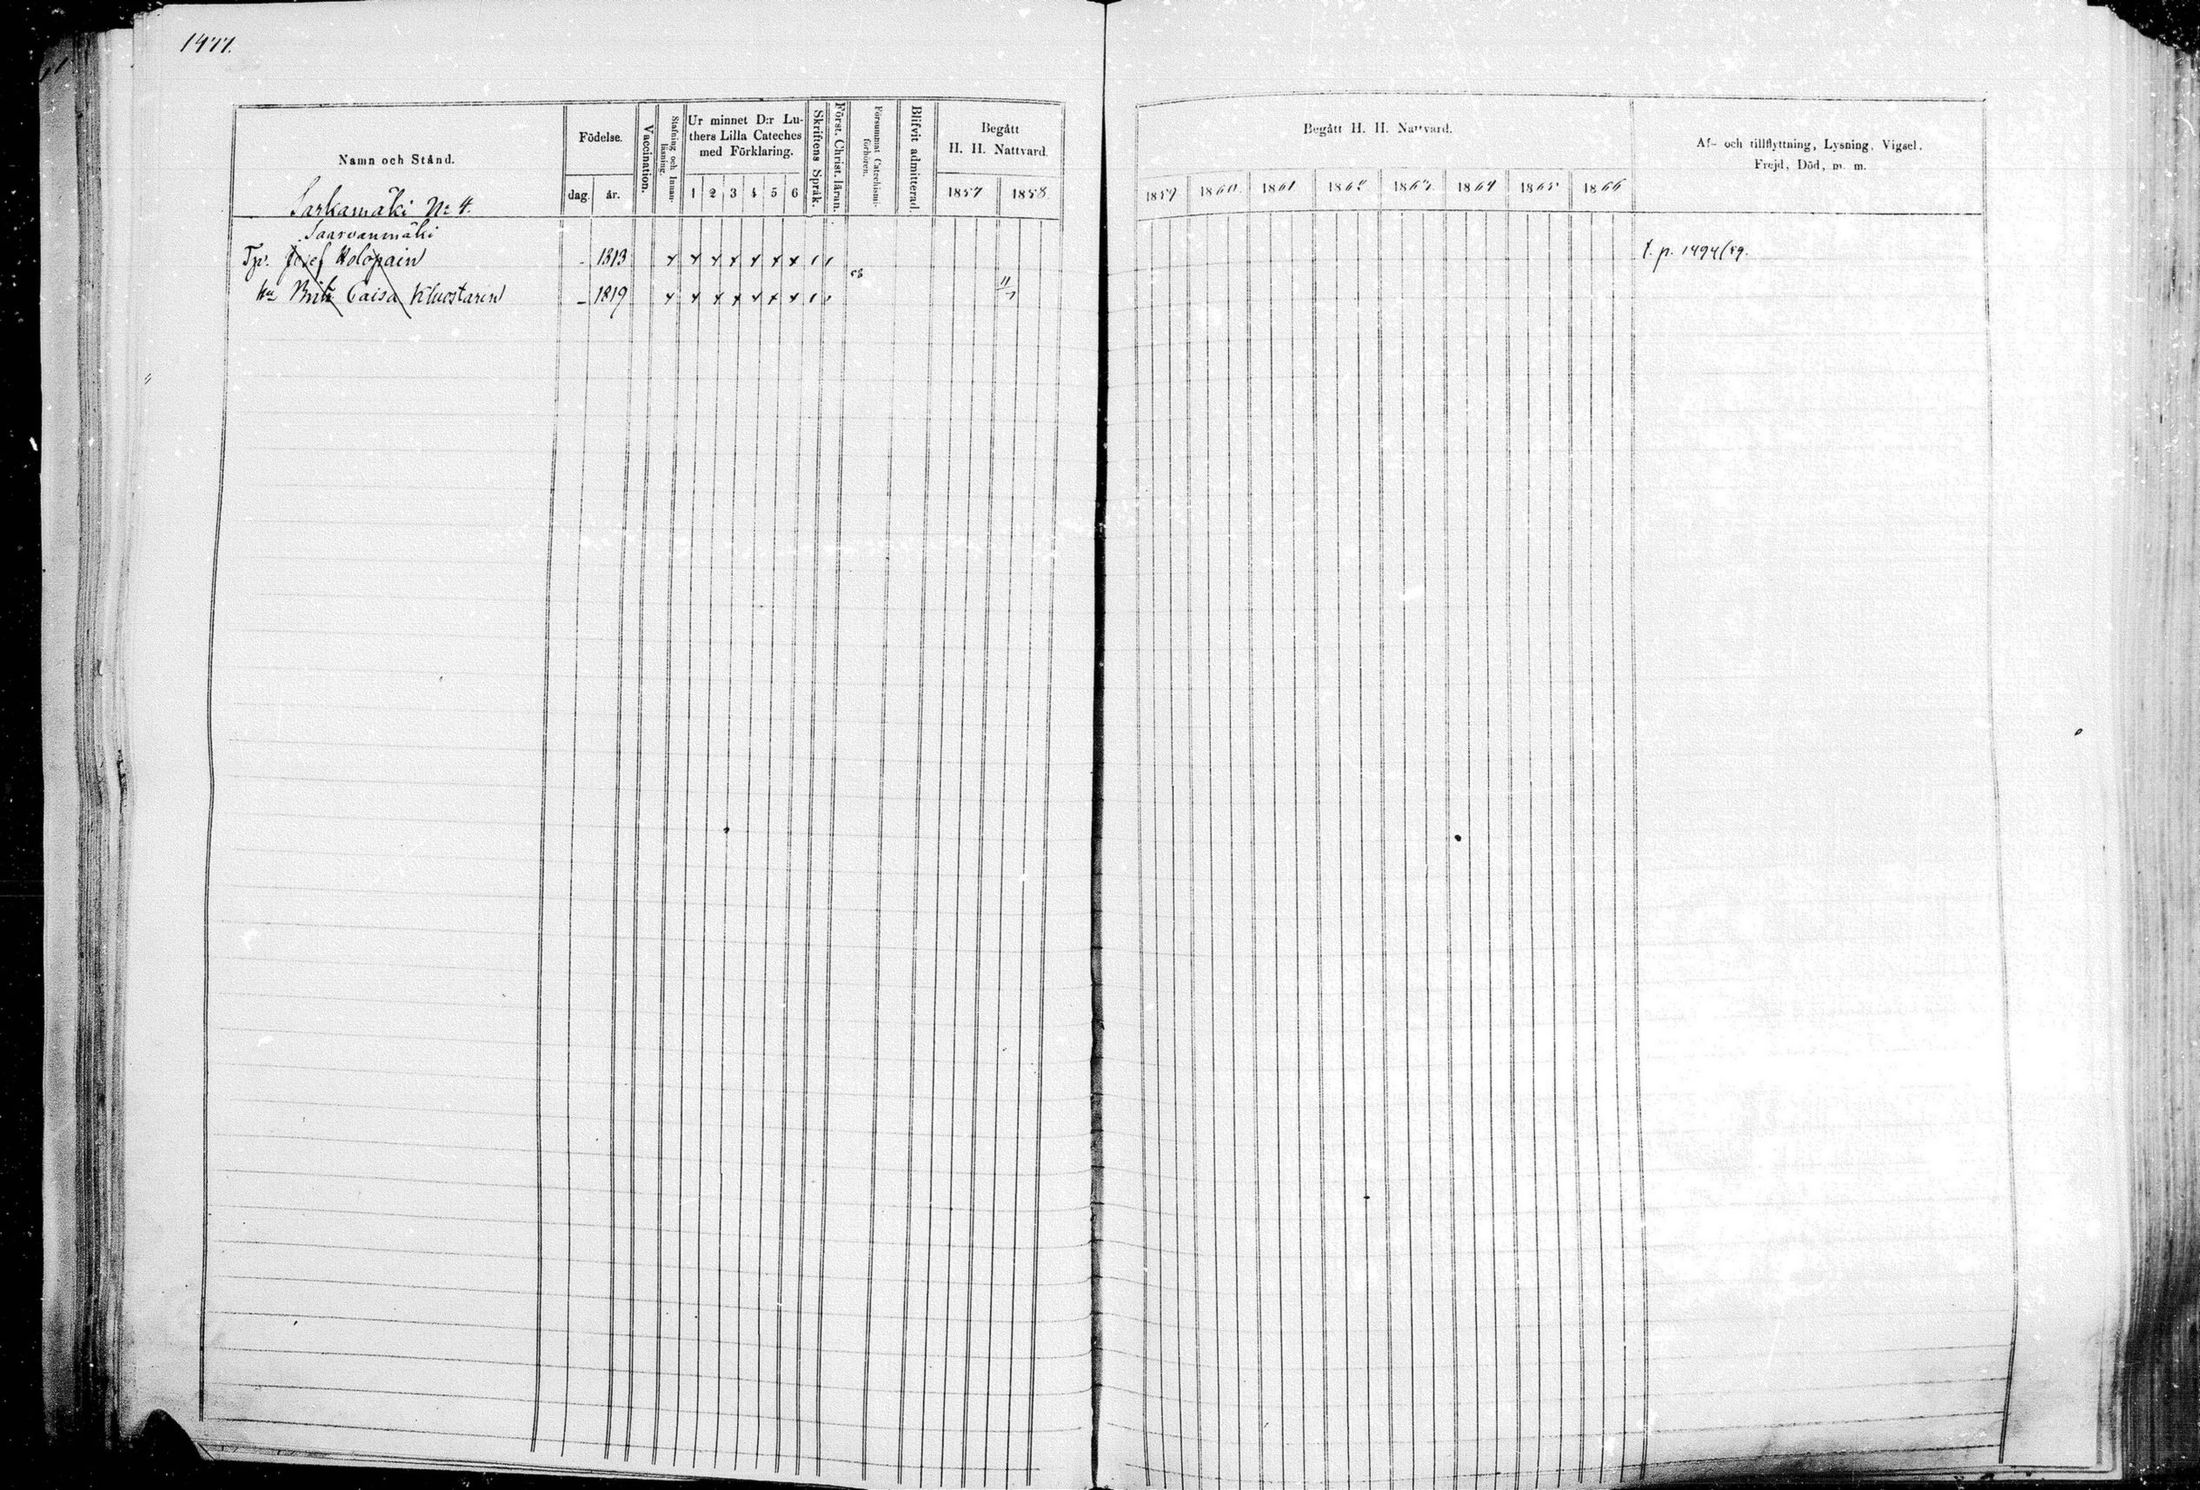 1477.
Namn och Stånd.
Födelse.
dag.
år.
Vaccination.
Stafning och Innan-
läsning.
Ur minnet D:r Lu-
thers Lilla Cateches
med Förklaring.
1 2 3 4 5 6
Skriftens Språk.
Först. Christ. läran.
Försummat Catechismi-
förhören.
Blifvit admitterad.
Begått
H. H. Nattvard.
1857 1858
Begått H. H. Nattvard.
1859 1860 1861 1862 1863 1864 1865 1866
Af- och tillflyttning, Lysning, Vigsel,
Frejd, Död, m. m.
Sarkamäki No 4.
Saarvanmäki
Tjv. Josef Holopain - 1813 x x x x x x x t. p. 1494/59.
58
Hu Brita Caisa Kluostaren - 1819 x x x x x x x 11/7